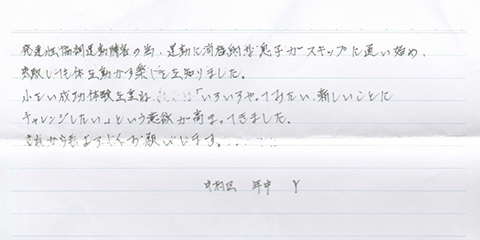 発達性協調運動障害の為、運動に消極的な息子がスキップに通い始め、
失敗しても体を動かす楽しさを知りました。
小さい成功体験を重ね 「いろいろやっておたい、新しいことに
チャレンジしたい」という意欲が高まってきました。
これからもよろしくお願いします。
中村区 年中 Y